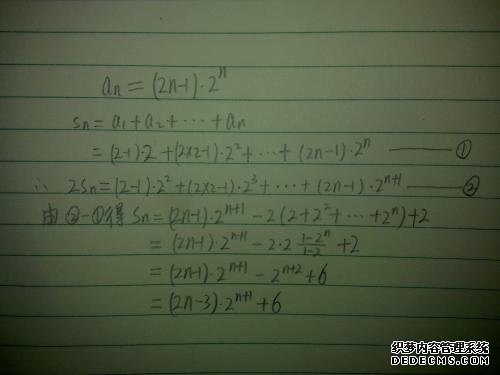 aₙ = (2n-1)·2ⁿ
Sₙ = a₁ + a₂ + ··· + aₙ
= (2-1)·2 + (2×2-1)·2² + ··· + (2n-1)·2ⁿ ——— ①
∴ 2Sₙ = (2-1)·2² + (2×2-1)·2³ + ··· + (2n-1)·2ⁿ⁺¹ —— ②
由②-①得 Sₙ = (2n-1)·2ⁿ⁺¹ - 2(2+2²+ ··· +2ⁿ)+2
= (2n-1)·2ⁿ⁺¹ - 2·2 (1-2ⁿ)/(1-2) + 2
= (2n-1)·2ⁿ⁺¹ - 2ⁿ⁺² + 6
= (2n-3)·2ⁿ⁺¹ + 6
织梦内容管理系统
DEDECMS.COM